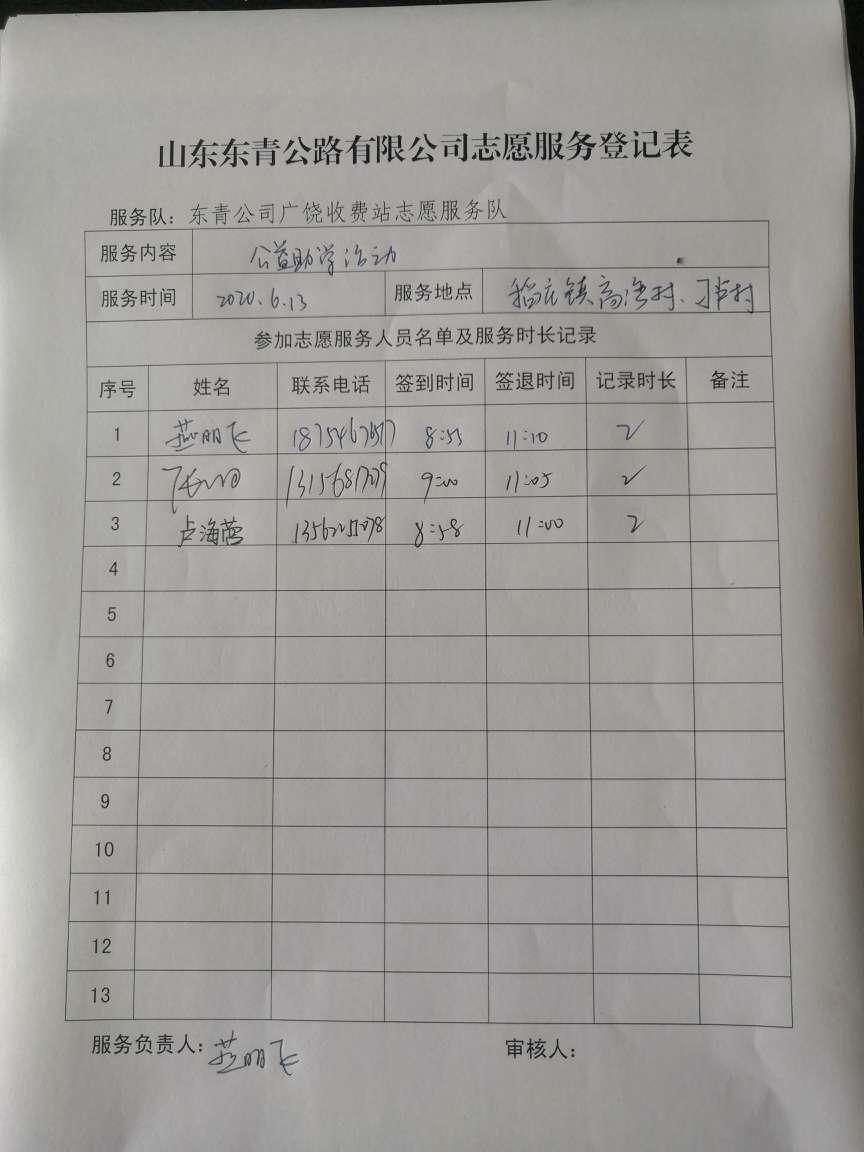 山东东青公路有限公司志愿服务登记表
服务队：东青公司广饶收费站志愿服务队
服务内容 公益助学活动
服务时间 2020.6.13 服务地点 稻庄镇
参加志愿服务人员名单及服务时长记录
序号 姓名 联系电话 签到时间 签退时间 记录时长 备注
1 燕丽飞 8:53 11:10 2
2 9:00 11:05 2
3 卢海营 8:58 11:00 2
4
5
6
7
8
9
10
11
12
13
服务负责人：燕丽飞 审核人：